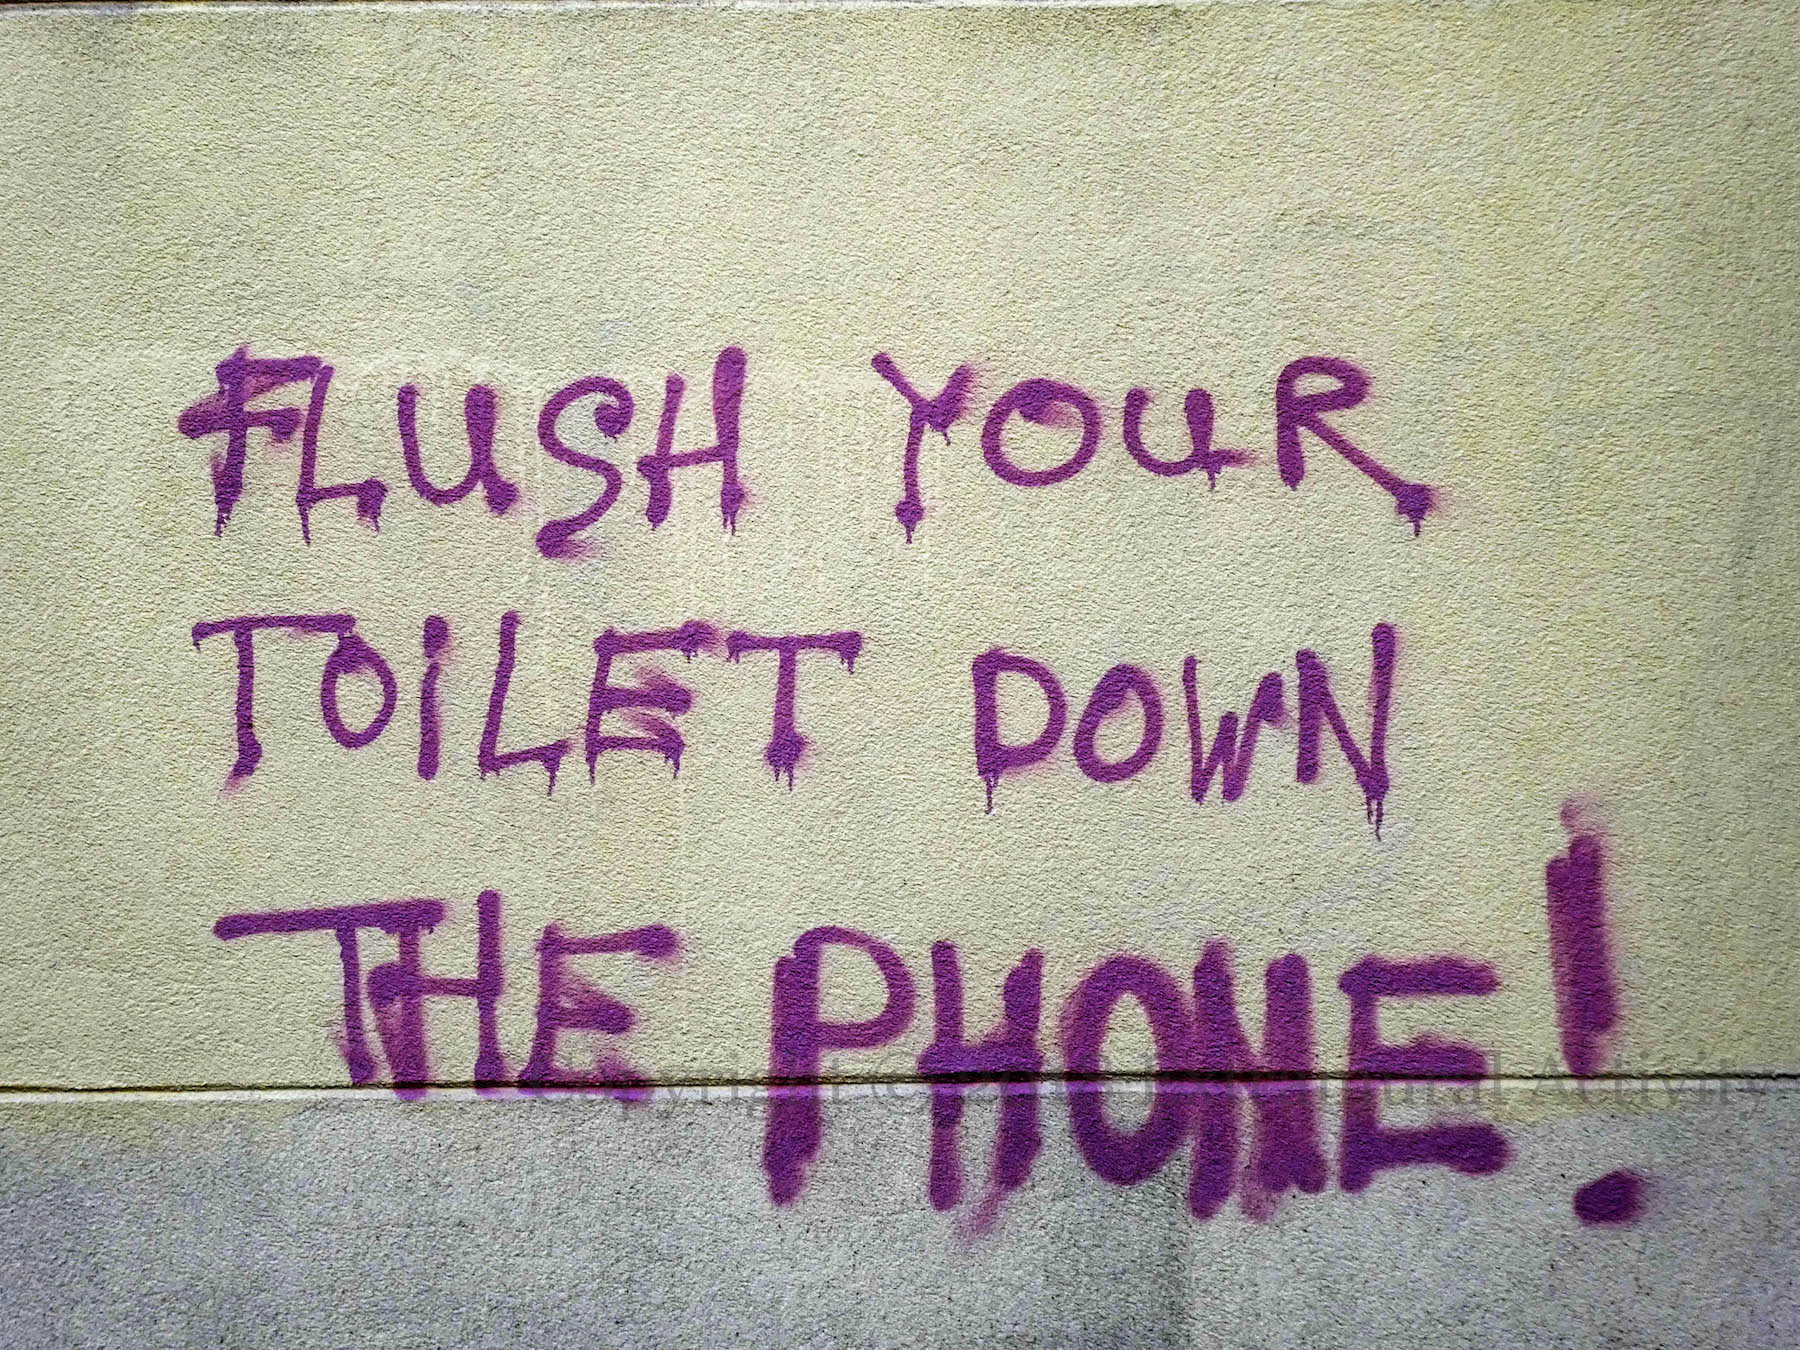 FLUSH YOUR
TOILET DOWN
THE PHONE!
Copyright © Natural Activity